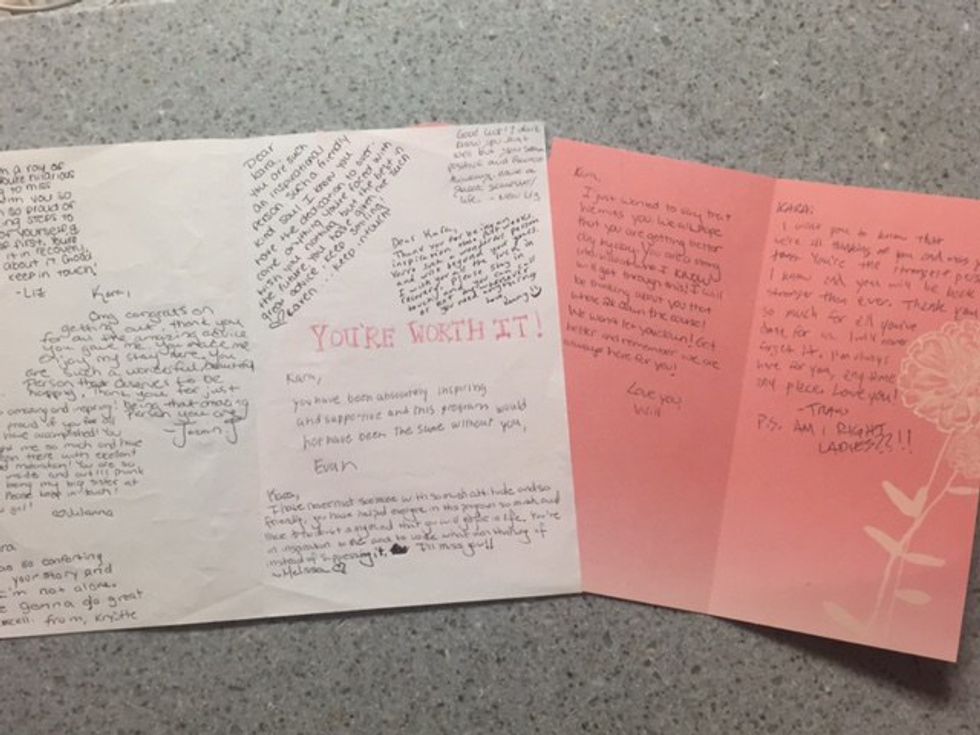 m a ray of
you're hilarious
to miss
with you so
so proud of
STEPS to
yourself &
first, You're
it in recovery,
about it. Good
keep in touch!
-Liz
Kara,
Omg congrats on
getting out, thank you
for all the amazing advice
you gave me, you made me
enjoy my stay here. You
are such a wonderful, beautiful
Person that deserves to be
happy. Thank you for just
being that amazing
Person you are!
amazing and inspiring!
proud of you for all
have accomplished! You
me so much and have
been there with
motivation! You are so
inside and out!!!
being my big sister at
Please keep in touch!
girl!
♡Julianna
so comforting
your story and
I'm not alone.
gonna do great
from, Krystle
Dear
Kara,
you are such
an inspirational
person such a friendly
kind soul. I know you
have the dedication to over
come anything you're faced with
wish you nothing but the best in
the future. you have given me such
great advice. keep smiling
keep
Good luck! I don't
know you that
well but you seem
positive and
have a
Life. - New Liz
Dear Kara,
Thank you for being an
inspiration and most of
You're such a wonderful person.
I wish you beyond the best in
recovery. Please stay in
touch and you can
or if you ever
need anything!
Love,
YOU'RE WORTH IT!
Kara,
you have been absolutely inspiring
and supportive and this program would
not have been the same without you,
Evan
Kara,
I have never met someone with so much attitude and so
friendly, you have helped everyone in this program so much and
that you will go far in life. You're
an inspiration to me and to voice what I'm thinking of
instead of suppressing it. I'll miss you!!
~Melissa ♡
Kara,
I just wanted to say that
we miss you. We all hope
that you are getting better
day by day. You are a strong
individual and I KNOW
will get through this! I will
be thinking about you that
whole ride down the course!
We won't let you down! Get
better and remember we are
always here for you!
Love you,
Will
KARA:
I want you to know that
we're all thinking of you and miss
You're the strongest person
I know and you will be back
stronger than ever. Thank you
so much for all you've
done for us. I will never
forget it. I'm always
here for you, any time
any place. Love you!
P.S. AM I RIGHT
LADIES??!!